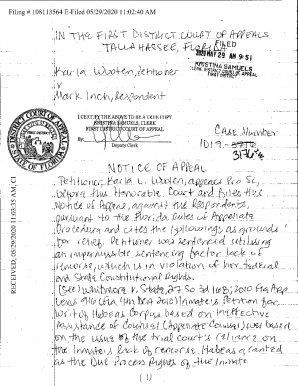 Filing # 108113564 E-Filed 05/29/2020 11:02:40 AM
IN THE FIRST DISTRICT COURT OF APPEALS
TALLAHASSEE, FLORIDA
FILED
2020 MAY 29 AM 9:51
KRISTINA SAMUELS
CLERK DISTRICT COURT OF APPEAL
FIRST DISTRICT
Karla Wooten, Petitioner
v
Mark Inch, Respondent
I CERTIFY THE ABOVE TO BE A TRUE COPY
KRISTINA SAMUELS, CLERK
FIRST DISTRICT COURT OF APPEAL
By:
Deputy Clerk
Case Number
1D19-
3176
RECEIVED, 05/29/2020 11:03:35 AM, Cl
NOTICE OF APPEAL
Petitioner, Karla L. Wooten, appears Pro Se,
before this Honorable Court and files this
Notice of Appeal, against the Respondents,
pursuant to the Florida Rules of Appellate
Procedure and cites the following as grounds
for relief. Petitioner was sentenced utilizing
an impermissible sentencing factor lack of
remorse, which is in violation of her federal
and State Constitutional Rights.
(See) Whitmore v. State, 27 So 3d 168; 2010 Fla App
Lexis 916 (Fla 4th DCA 2010) Inmate's Petition for
Writ of Habeas Corpus based on ineffective
Assistance of Counsel (Appellate Counsel) was based
on the issue of the trial courts reliance on
the inmate's lack of remorse. Habeas granted
as the Due Process Rights of the Inmate
(1)